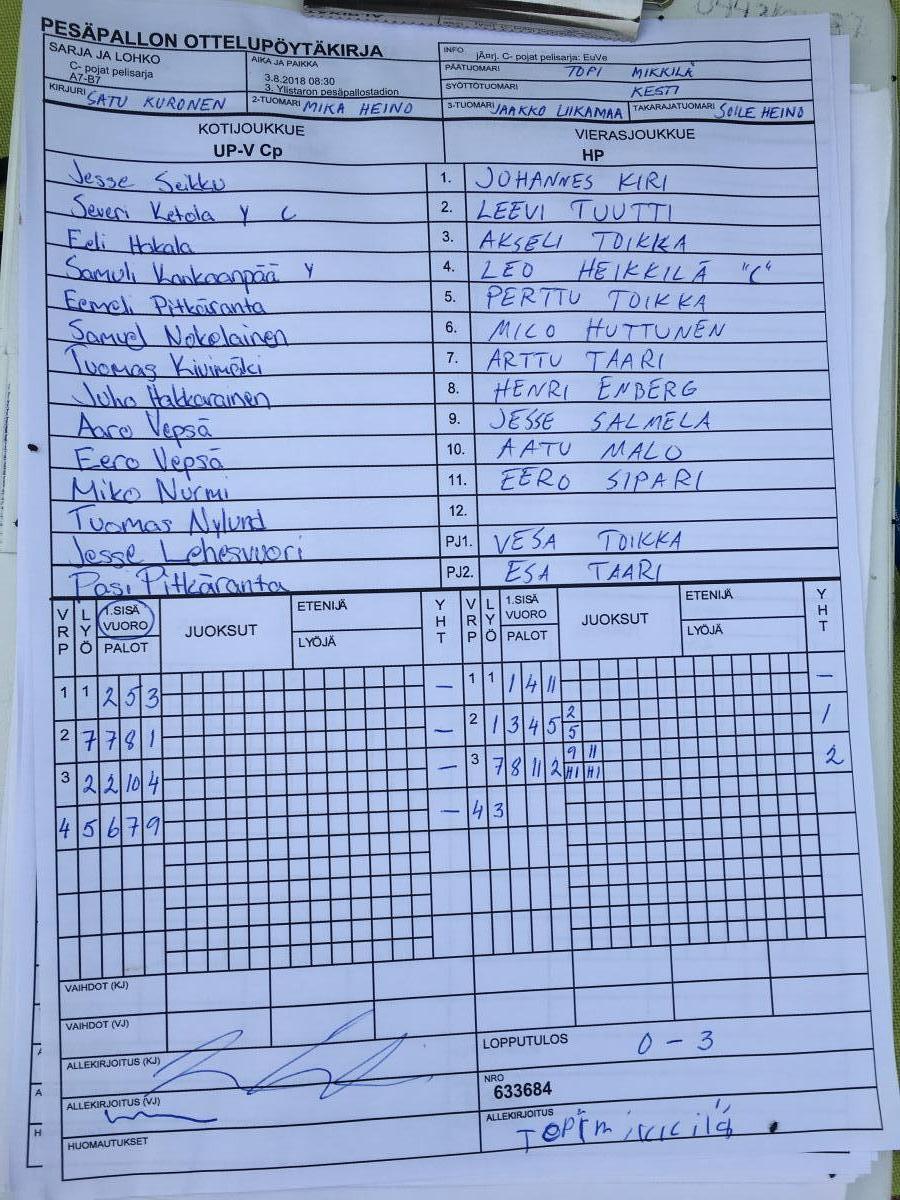 PESÄPALLON OTTELUPÖYTÄKIRJA
SARJA JA LOHKO
C- pojat pelisarja
A7-B7
AIKA JA PAIKKA
3.8.2018 08:30
3. Ylistaron pesäpallostadion
INFO jÄnrj. C- pojat pelisarja: EuVe
PÄÄTUOMARI TOPI MIKKILÄ
SYÖTTÖTUOMARI KESTI
KIRJURI SATU KURONEN 2-TUOMARI MIKA HEINO 3-TUOMARI JAAKKO LIIKAMAA TAKARAJATUOMARI SOILE HEINO
KOTIJOUKKUE VIERASJOUKKUE
UP-V Cp HP
Jesse Seikku 1. JOHANNES KIRI
Severi Ketola Y C 2. LEEVI TUUTTI
Eeli Hakala 3. AKSELI TOIKKA
Samuli Kankaanpää Y 4. LEO HEIKKILÄ "C"
Eemeli Pitkäranta 5. PERTTU TOIKKA
Samuel Nokelainen 6. MILO HUTTUNEN
Tuomas Kivimäki 7. ARTTU TAARI
Juho Hakkarainen 8. HENRI ENBERG
Aaro Vepsä 9. JESSE SALMELA
Eero Vepsä 10. AATU MALO
Miko Nurmi 11. EERO SIPARI
Tuomas Nylund 12.
Jesse Lehesvuori PJ1. VESA TOIKKA
Pasi Pitkäranta PJ2. ESA TAARI
VRP LYÖ 1.SISÄ VUORO PALOT JUOKSUT ETENIJÄ LYÖJÄ YHT VRP LYÖ 1.SISÄ VUORO PALOT JUOKSUT ETENIJÄ LYÖJÄ YHT
1 1 2 5 3 – 1 1 1 4 11 –
2 7 7 8 1 – 2 1 3 4 5 2/5 1
3 2 2 10 4 – 3 7 8 11 2 9/H1 11/H1 2
4 5 6 7 9 – 4 3
VAIHDOT (KJ)
VAIHDOT (VJ)
ALLEKIRJOITUS (KJ) LOPPUTULOS 0 – 3
NRO
633684
ALLEKIRJOITUS (VJ) ALLEKIRJOITUS
TOPI mikkilä
HUOMAUTUKSET